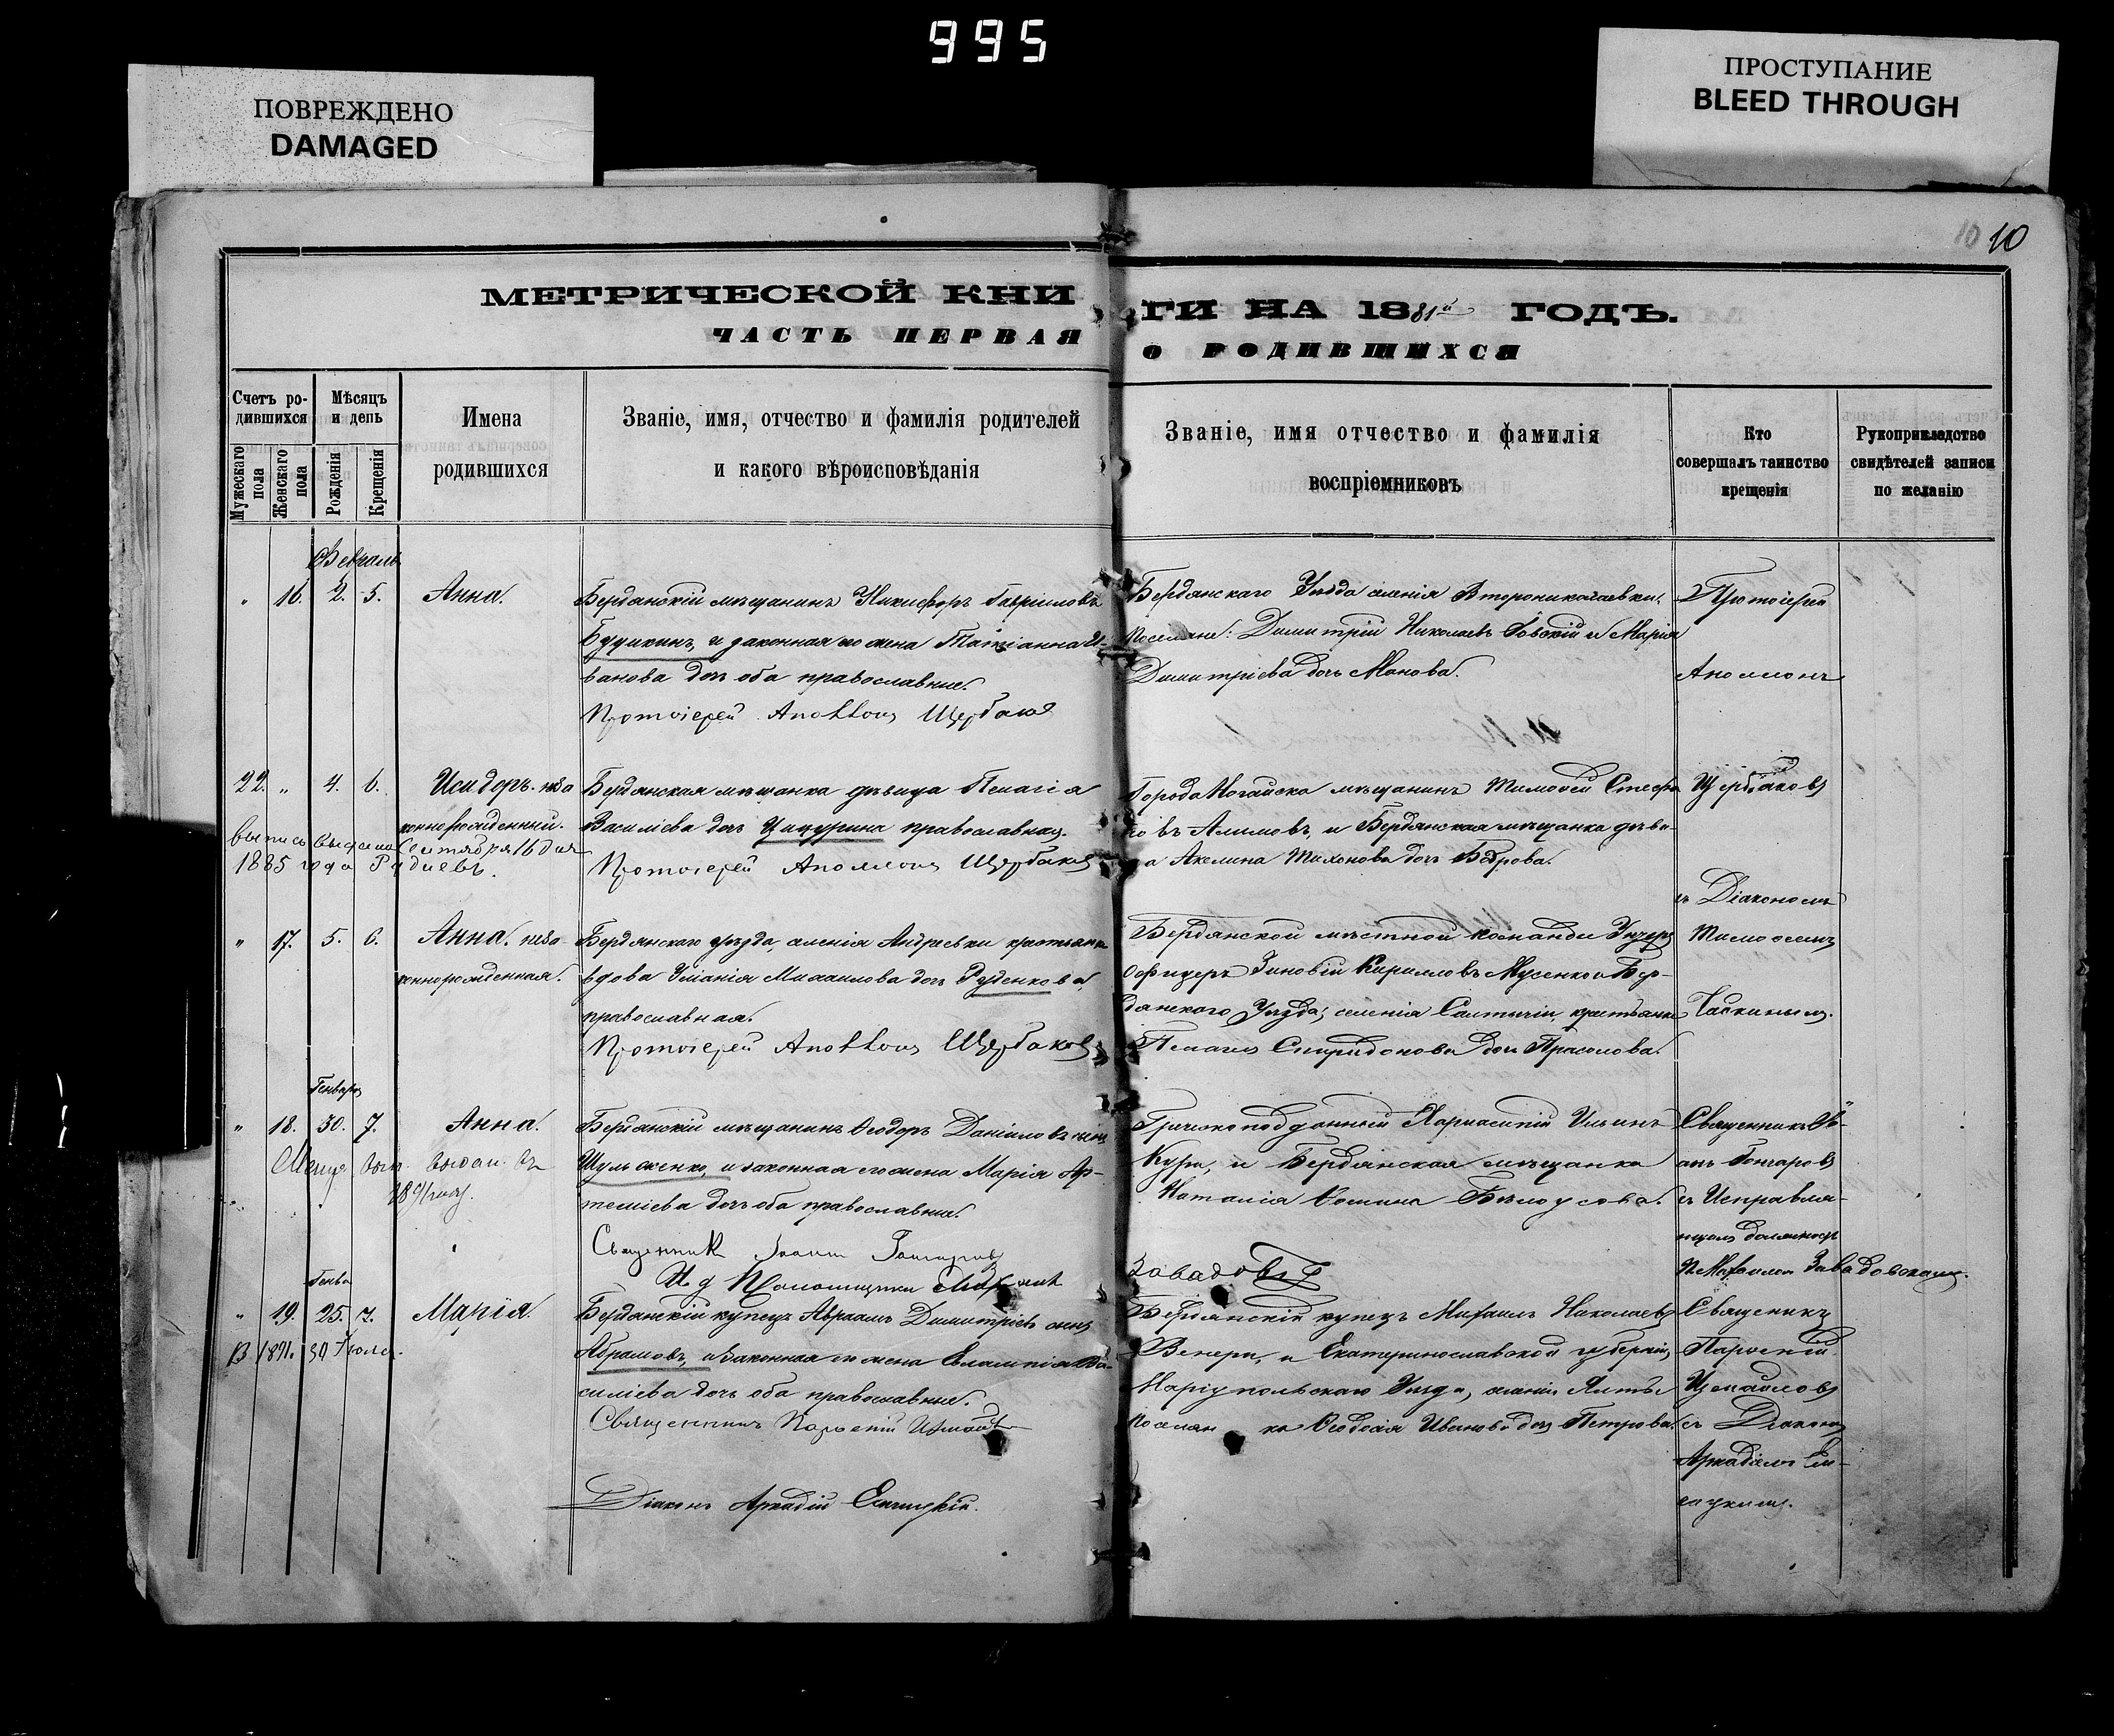 995
ПОВРЕЖДЕНО
DAMAGED
ПРОСТУПАНИЕ
BLEED THROUGH
10 10
МЕТРИЧЕСКОЙ КНИ
ГИ НА 1881й ГОДЪ.
ЧАСТЬ ПЕРВАЯ
О РОДИВШИХСЯ
Счетъ ро-
дившихся
Мужескаго пола
Женскаго пола
Мѣсяцъ
и день
Рожденія
Крещенія
Имена
родившихся
Званіе, имя, отчество и фамилія родителей
и какого вѣроисповѣданія
Званіе, имя отчество и фамилія
воспріемниковъ
Кто
совершалъ таинство
крещенія
Рукоприкладство
свидѣтелей записи
по желанію
Февраль
" 16. 2. 5. Анна.
Бердянскій мѣщанинъ Никифоръ Гавріиловъ
и законная его жена Татіанна И-
ванова дочь оба православные.
Протоіерей Аполлонъ Щербаковъ
Бердянскаго Уѣзда селенія Второниколаевки,
поселяне: Димитрій Николаевъ и Марія
Димитріева дочь Манова.
Протоіерей
Аполлонъ
22. " 4. 6. Исидоръ. неза
коннорожденный.
выпись выдана Сентября 16 дня
1885 года
Бердянская мѣщанка дѣвица Пелагія
Василіева дочь Цицурина православная.
Протоіерей Аполлонъ Щербаковъ
Города Ногайска мѣщанинъ Тимофей Стефа
новъ Алимовъ, и Бердянская мѣщанка дѣви-
а Акелина Тихонова дочь
Щербаковъ
съ Діакономъ
" 17. 5. 6. Анна. неза-
коннорожденная.
Бердянскаго уѣзда, селенія Андреевки крестьянка
вдова Михаилова дочь Руденкова,
православная.
Протоіерей Аполлонъ Щербаковъ
Бердянской мѣстной команды Унтеръ
офицеръ Зиновій Кирилловъ Мусенко и Бер-
дянскаго Уѣзда, селенія Салтычіи крестьянка
Пелагія Спиридонова дочь Прасолова.
Тимофеемъ
Чайкинымъ.
Генваря
" 18. 30. 7. Анна.
Метр. вып. выдан. въ
Бердянскій мѣщанинъ Ѳеодоръ Даніиловъ сынъ
Шульженко, и законная его жена Марія Ар-
теміева дочь оба православные.
Священникъ Іоаннъ Гончаровъ
И д Псаломщика
Завадовскій
Греческоподданный Ильинъ
Кури, и Бердянская мѣщанка
Наталія Ѳомина Бѣлоусова.
Священникъ Іо-
анъ Гончаровъ
съ Исправля-
ющимъ должность
Завадовскимъ.
Генва
" 19. 25. 7. Марія.
Бердянскій купецъ Авраамъ Димитріевъ сынъ
Абрамовъ, и законная его жена Евлампія Ва-
силіева дочь оба православные.
Священникъ Парѳеній
Діаконъ Аркадій
Бердянскій купецъ Михаилъ Николаевъ
Венери, и Екатеринославской губерніи,
Маріупольскаго Уѣзда, селенія Ялты
поселян ка Ѳеодосія Иванова дочь Петрова.
Священикъ
Парѳеній
Измаиловъ
съ Діакономъ
Аркадіемъ